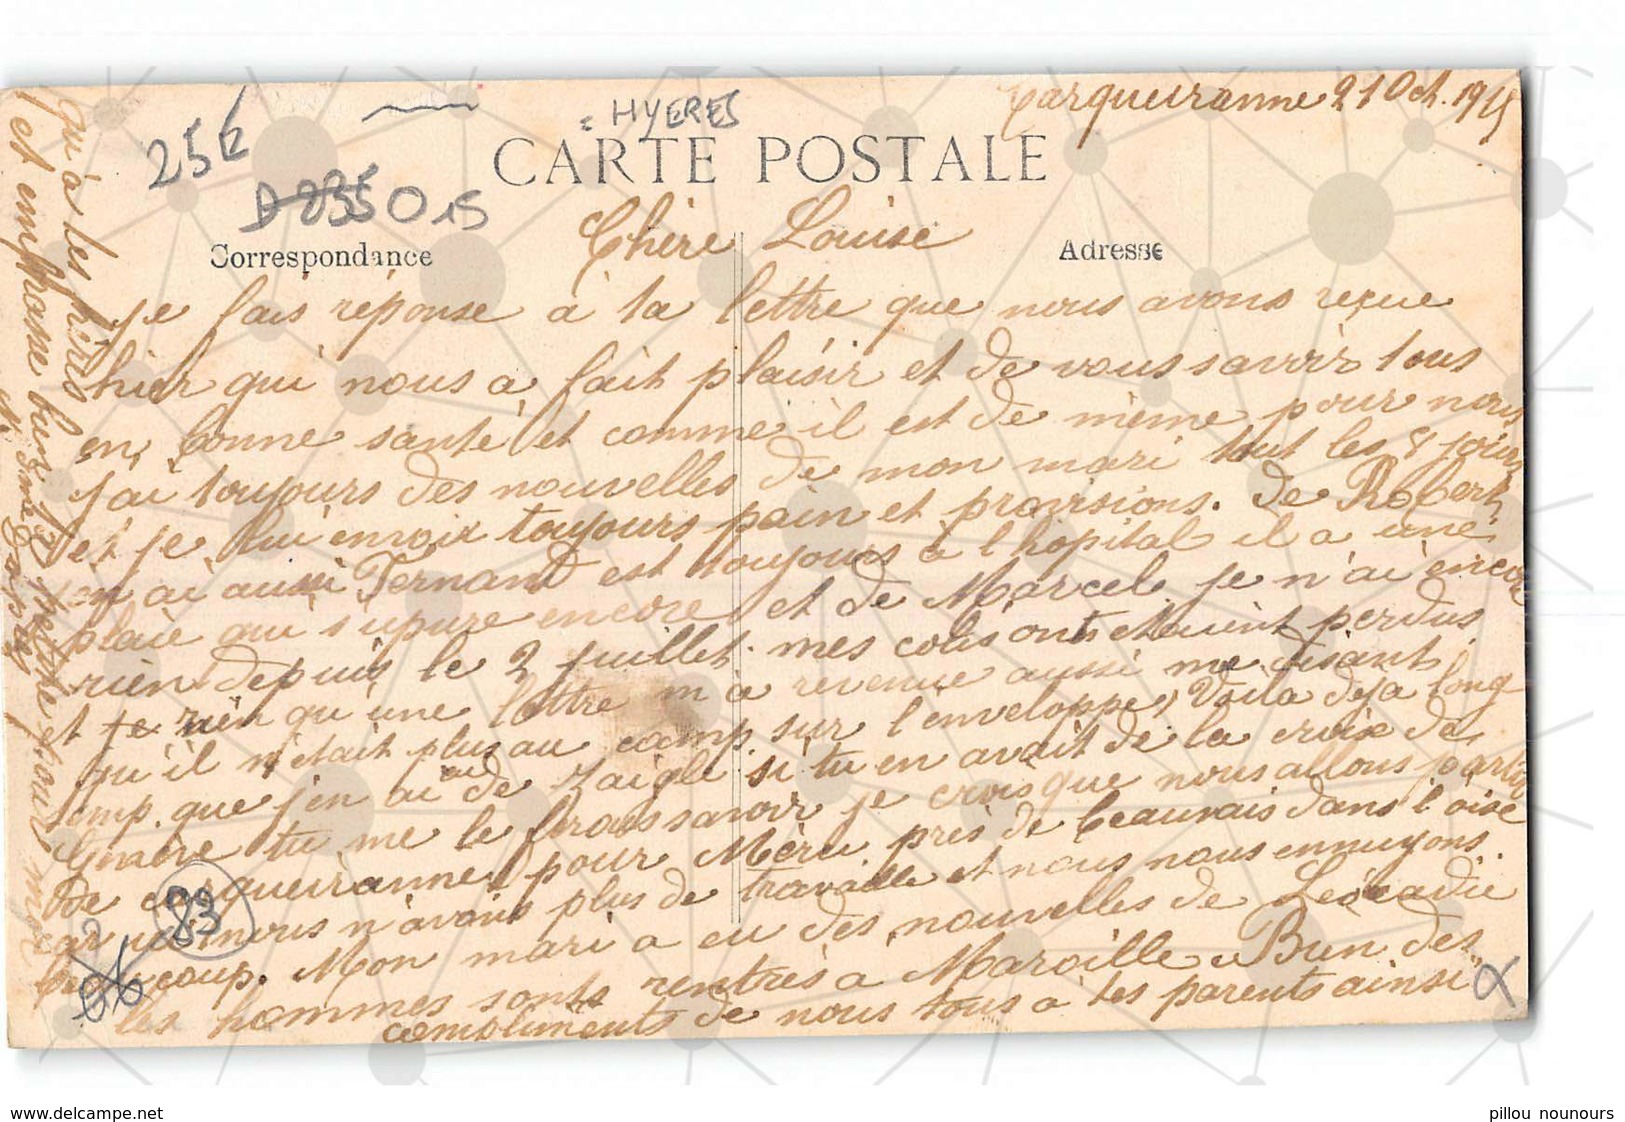 Carqueiranne 21 Oct. 1915
= HYERES
25E
CARTE POSTALE
D 235 015
Correspondance
Adresse
Chère Louise
je fais réponse à ta lettre que nous avons reçue
hier qui nous a fait plaisir et de vous savoir tous
en bonne santé et comme il est de même pour nous
j'ai toujours des nouvelles de mon mari tout les 8 jours
et je lui envoix toujours pain et provisions. de Robert
j'en ai aussi Fernand est toujours à l'hopital il a une
plaie qui supure encore et de Marcel je n'ai encore
rien depuis le 2 juillet. mes colis ont étaient perdus
et je rien qu'une lettre m'a revenue aussi me disant
qu'il n'était plus au camp. sur l'enveloppe, Voila déja long
temp. que j'en ai de Zaigle si tu en avait de la croix de
Guerre tu me le feras savoir je crois que nous allons partir
de carqueiranne pour Méru près de beauvais dans l'oise
car nous n'avons plus de travaille et nous nous ennuyons
beaucoup. Mon mari a eu des nouvelles de Léocadie
les hommes sont rentrés à Maroille. Bien des
compliments de nous tous à tes parents ainsi
qu'à les
et embrasse bien
pour moi
83
www.delcampe.net
pillou nounours